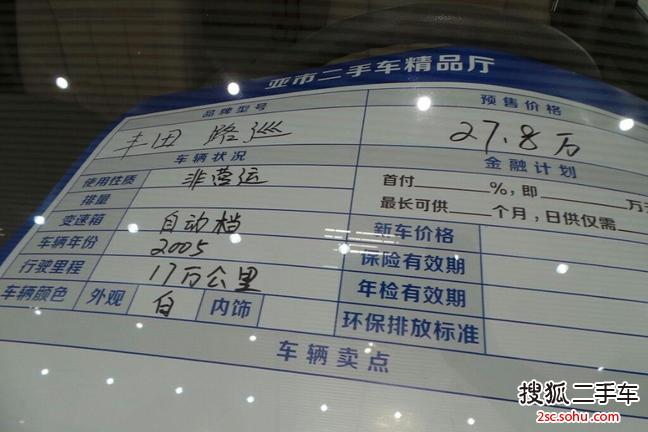 亚市二手车精品厅
品牌型号 预售价格
丰田 路巡 27.8万
车辆状况 金融计划
使用性质 非营运 首付____%,即____万元
排量 最长可供____个月,日供仅需____
变速箱 自动档 新车价格
车辆年份 2005 保险有效期
行驶里程 17万公里 年检有效期
车辆颜色 外观 白 内饰 环保排放标准
车辆卖点
搜狐二手车
2sc.sohu.com